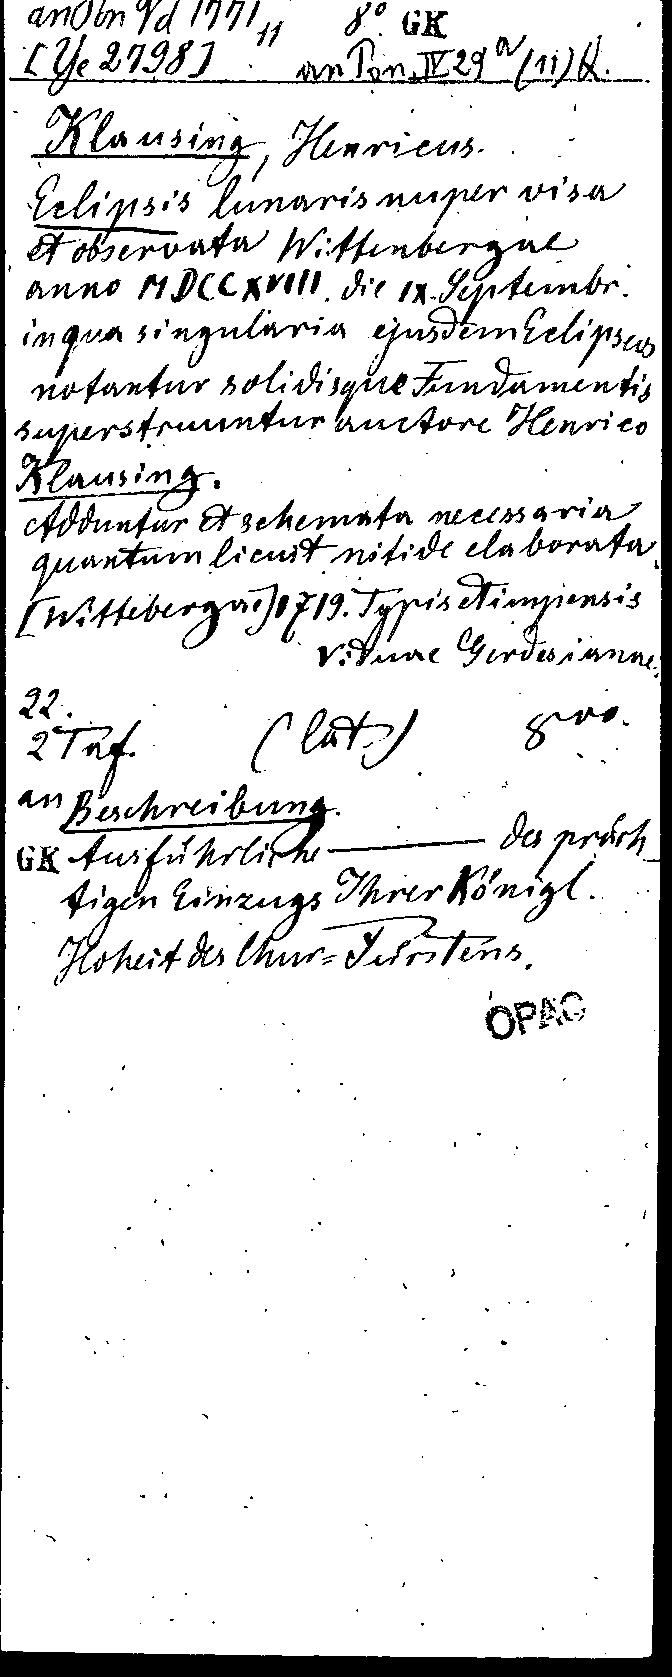 an Obn Vd 1771, 11 8° GK
[Ye 2798] an Pon. IV 29a (11) R.
Klausing, Henricus.
Eclipsis lunaris nuper visa
et observata Wittenbergae
anno MDCCXVIII. die IX. Septembr.
in qua singularia ejusdem Eclipseos
notantur solidisque Fundamentis
superstruuntur auctore Henrico
Klausing.
Adduntur et schemata necessaria
quantum licuit nitide elaborata.
[Wittebergae] 1719. Typis et impensis
Viduae Gerdesianae.
22.
2 Taf. (lat.) 8vo.
an Beschreibung.
GK Ausführliche ——— des präch-
tigen Einzugs Ihrer Königl.
Hoheit des Chur=Fürstens.
OPAC